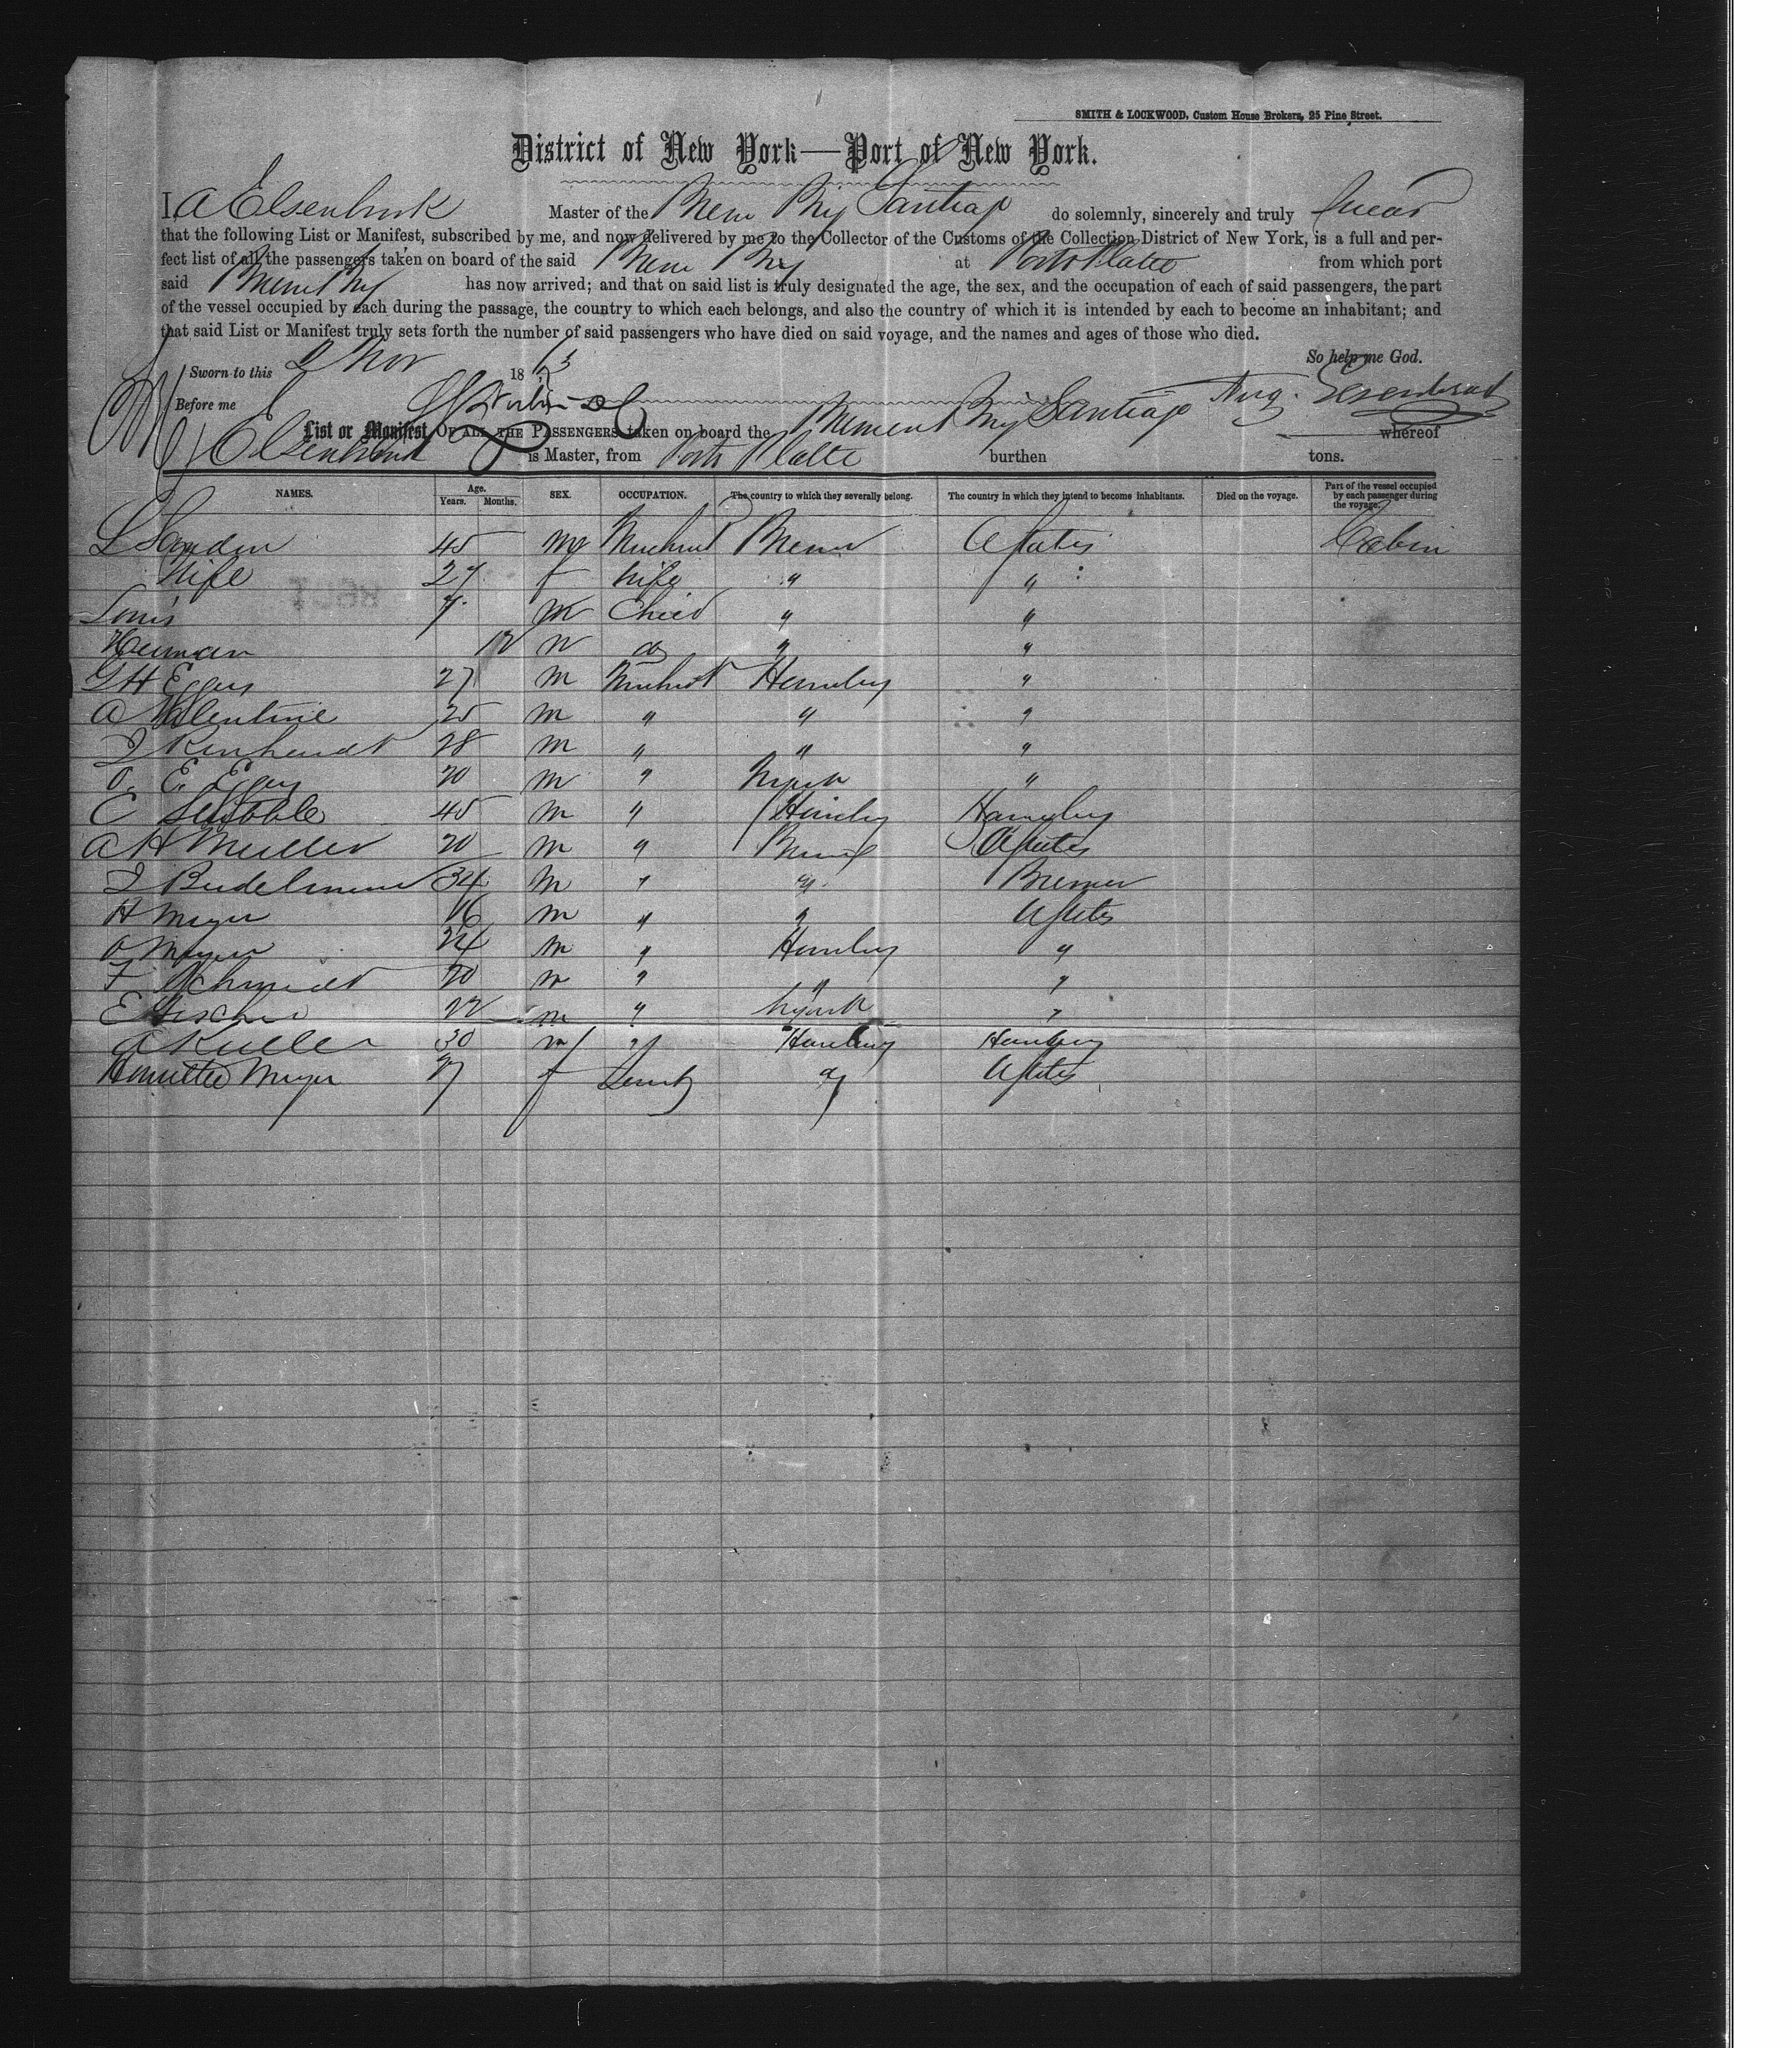 SMITH & LOCKWOOD, Custom House Brokers, 25 Pine Street.
District of New York—Port of New York.
I A Elsenbrok Master of the Brem Brig Santiago do solemnly, sincerely and truly swear
that the following List or Manifest, subscribed by me, and now delivered by me to the Collector of the Customs of the Collection District of New York, is a full and per-
fect list of all the passengers taken on board of the said Brem Brig at Porto Platte from which port
said Brem Brig has now arrived; and that on said list is truly designated the age, the sex, and the occupation of each of said passengers, the part
of the vessel occupied by each during the passage, the country to which each belongs, and also the country of which it is intended by each to become an inhabitant; and
that said List or Manifest truly sets forth the number of said passengers who have died on said voyage, and the names and ages of those who died.
Sworn to this 2 Nov 1863 So help me God.
Before me Aug.
List or Manifest OF ALL THE PASSENGERS taken on board the Brig Santiago whereof
is Master, from Porto Platte burthen tons.
NAMES. Age. Years. Months. SEX. OCCUPATION. The country to which they severally belong. The country in which they intend to become inhabitants. Died on the voyage. Part of the vessel occupied by each passenger during the voyage.
L 45 M Merchant Bremen U States Cabin
Wife 27 f Wife " "
Louis 7 M Child " "
Herman 12 do " "
G H Eggers 27 M Merchant Hamburg "
A Valentine 25 m " " "
J Reinhardt 28 m " " "
O. E. Eggers 20 m " "
C 45 m " Hamburg Hamburg
A H Muller 20 m " Bremen U States
J Budelmann 34 m " " Bremen
H Meyer 16 m " " U States
O Meyer 24 m " Hamburg "
F Schmidt 20 m " " "
E Fischer 22 m " "
A Kuller 30 m " Hamburg Hamburg
Henriette Meyer f " U States